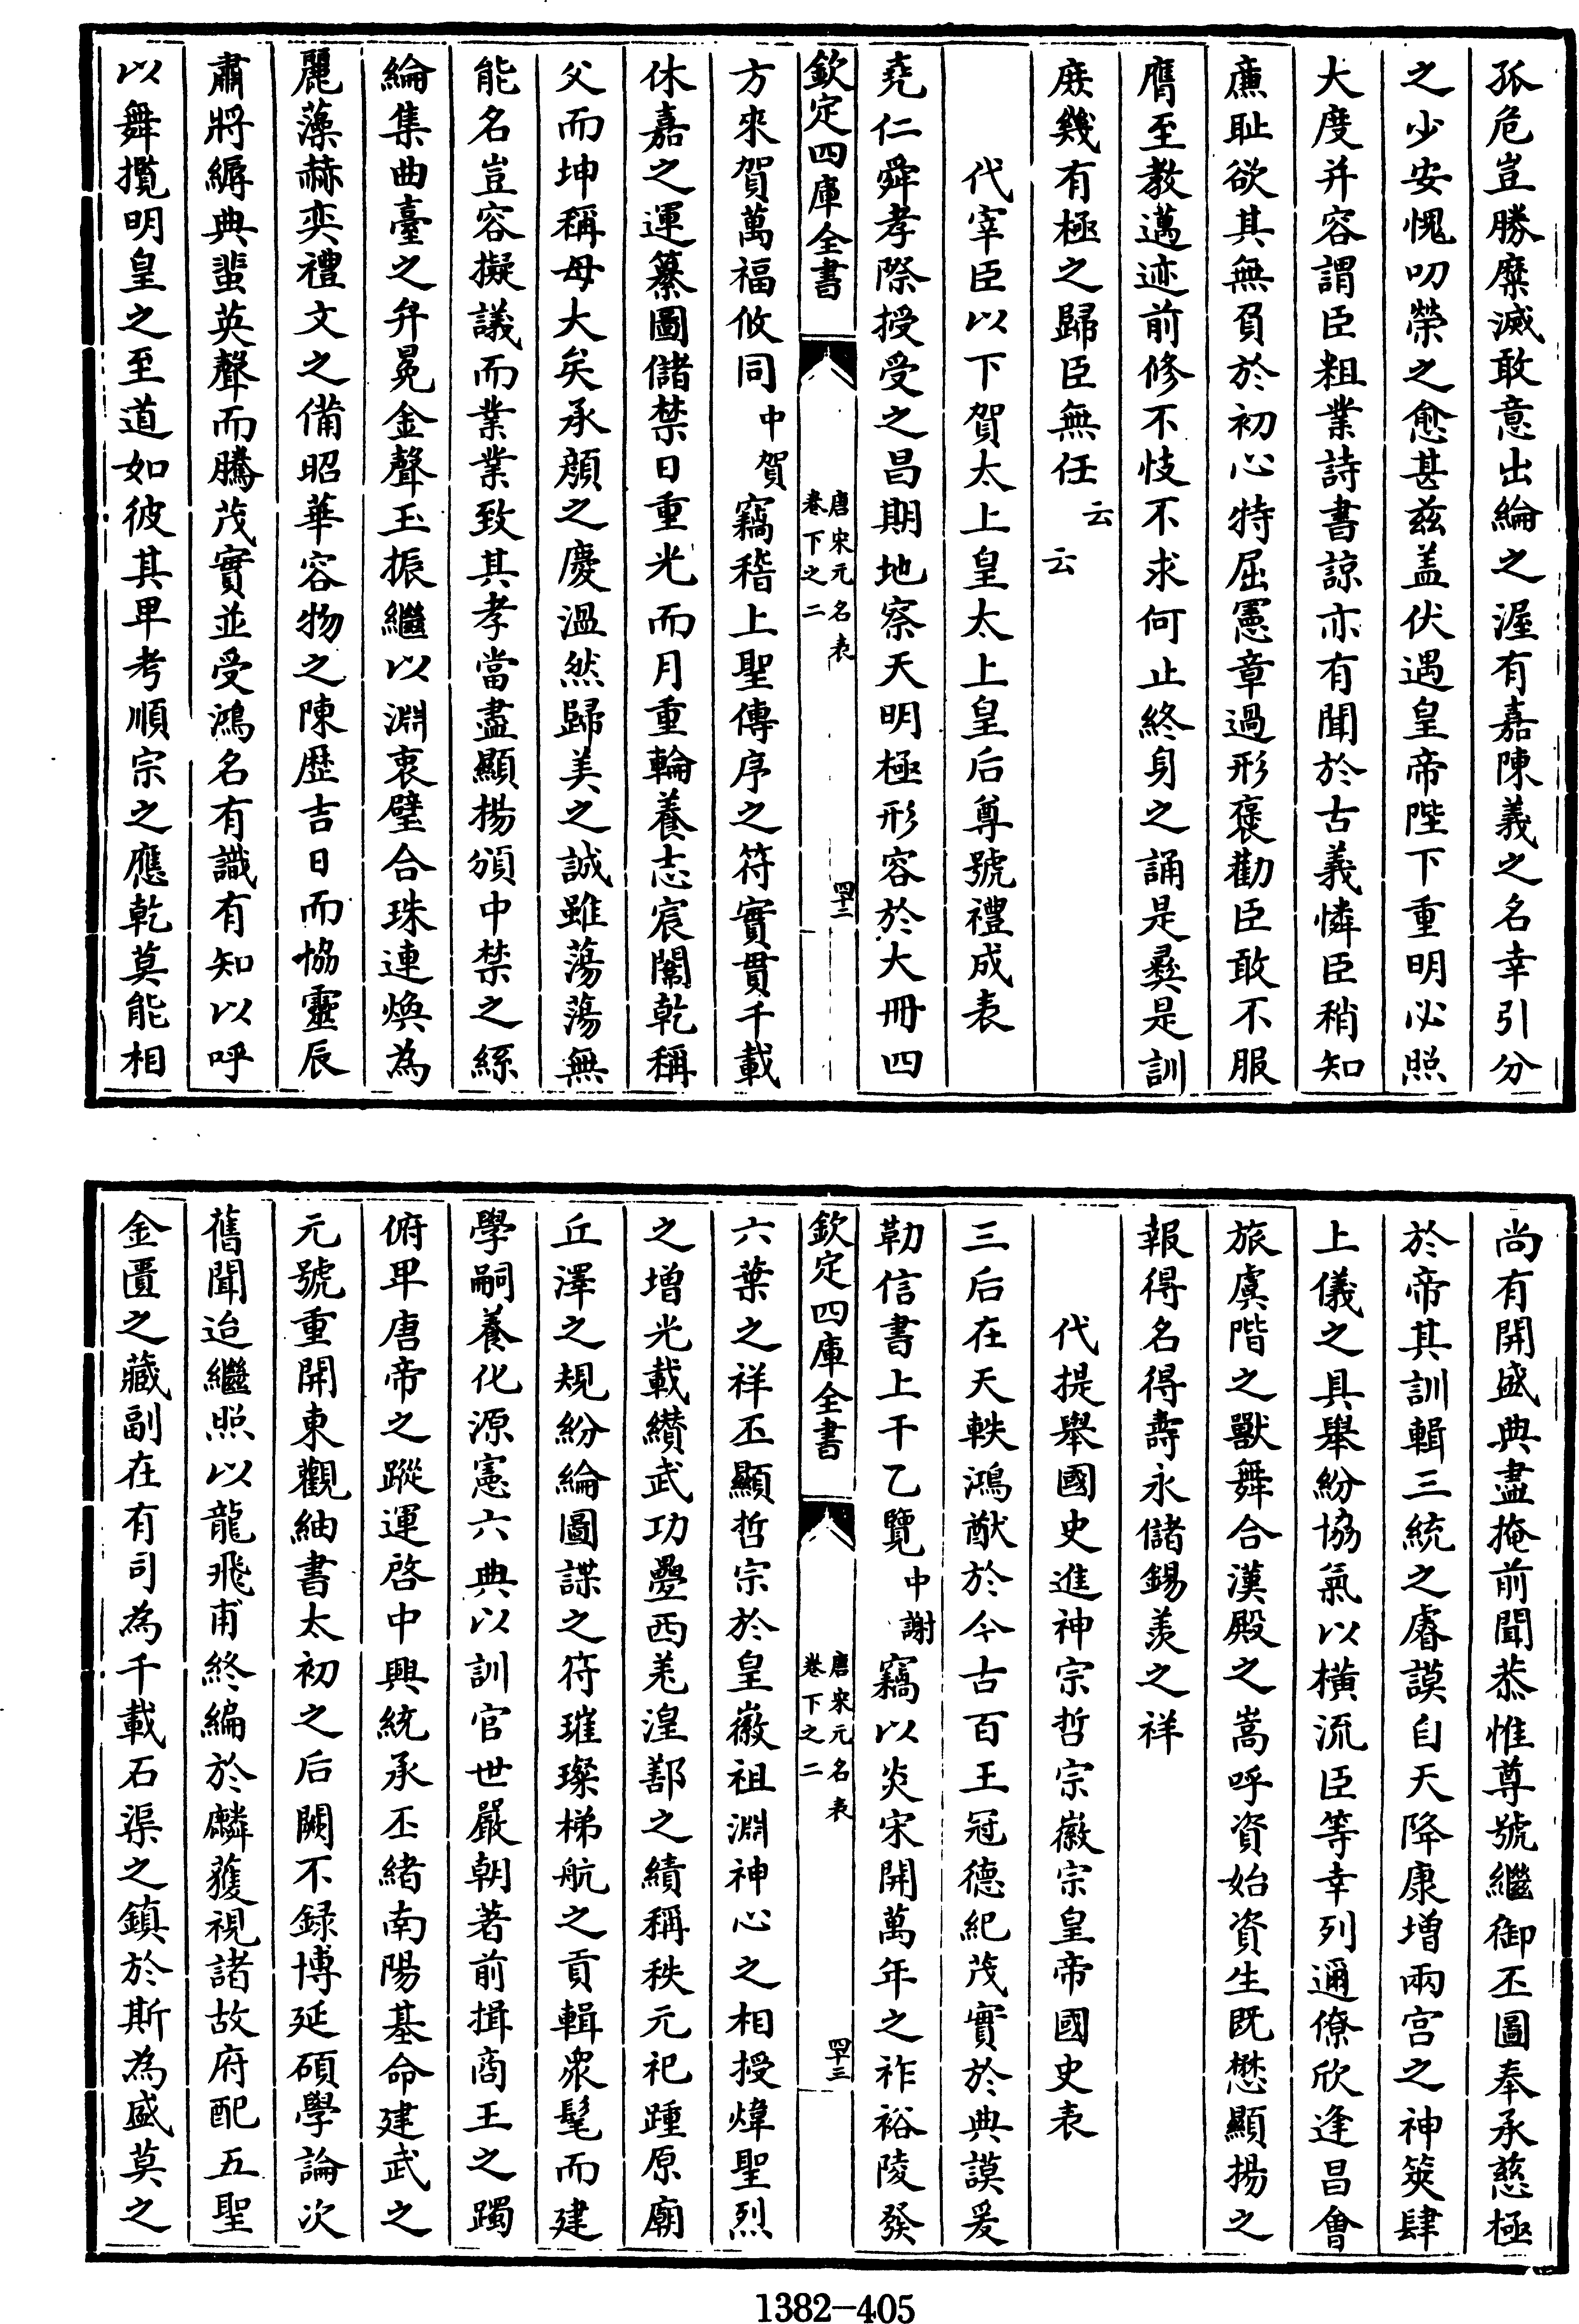 孤危豈勝糜滅敢意出綸之渥有嘉陳義之名幸引分
之少安愧叨榮之愈甚兹盖伏遇皇帝陛下重明必照
大度并容謂臣粗業詩書諒亦有聞於古義憐臣稍知
亷耻欲其無負於初心特屈憲章過形褒勸臣敢不服
膺至教邁迹前修不忮不求何止終身之誦是彛是訓
庶幾有極之歸臣無任云云
代宰臣以下賀太上皇太上皇后尊號禮成表
堯仁舜孝際授受之昌期地察天明極形容於大冊四
欽定四庫全書
唐宋元名表
卷下之二
四十二
方來賀萬福攸同中賀竊稽上聖傳序之符實貫千載
休嘉之運纂圖儲禁日重光而月重輪養志宸闈乾稱
父而坤稱母大矣承顔之慶溫然歸美之誠雖蕩蕩無
能名豈容擬議而業業致其孝當盡顯揚頒中禁之絲
綸集曲臺之弁冕金聲玉振繼以淵衷璧合珠連煥為
麗藻赫奕禮文之備昭華容物之陳歴吉日而協靈辰
肅將縟典蜚英聲而騰茂實並受鴻名有識有知以呼
以舞攬明皇之至道如彼其卑考順宗之應乾莫能相
尚有開盛典盡掩前聞恭惟尊號繼御丕圖奉承慈極
於帝其訓輯三統之睿謨自天降康增兩宫之神筴肆
上儀之具舉紛協氣以横流臣等幸列邇僚欣逢昌會
旅虞階之獸舞合漢殿之嵩呼資始資生既懋顯揚之
報得名得壽永儲錫羨之祥
代提舉國史進神宗哲宗徽宗皇帝國史表
三后在天軼鴻猷於今古百王冠德紀茂實於典謨爰
勒信書上干乙覽中謝竊以炎宋開萬年之祚裕陵發
欽定四庫全書
唐宋元名表
卷下之二
四十三
六葉之祥丕顯哲宗於皇徽祖淵神心之相授煒聖烈
之増光載纘武功疊西羌湟鄯之績稱秩元祀踵原廟
丘澤之規紛綸圖諜之符璀璨梯航之貢輯衆髦而建
學嗣養化源憲六典以訓官世嚴朝著前揖商王之躅
俯卑唐帝之蹤運啓中興統承丕緒南陽基命建武之
元號重開東觀紬書太初之后闕不録博延碩學論次
舊聞迨繼照以龍飛甫終編於麟獲視諸故府配五聖
金匱之藏副在有司為千載石渠之鎮於斯為盛莫之
1382-405